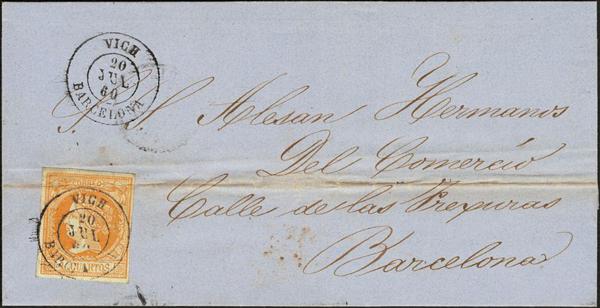 VICH
20
JUL
60
BARCELONA
S. S. Alesan Hermanos
Del Comercio
Calle de las Trexuras
Barcelona
VICH
20
JUL
60
BARCELONA
CUARTOS